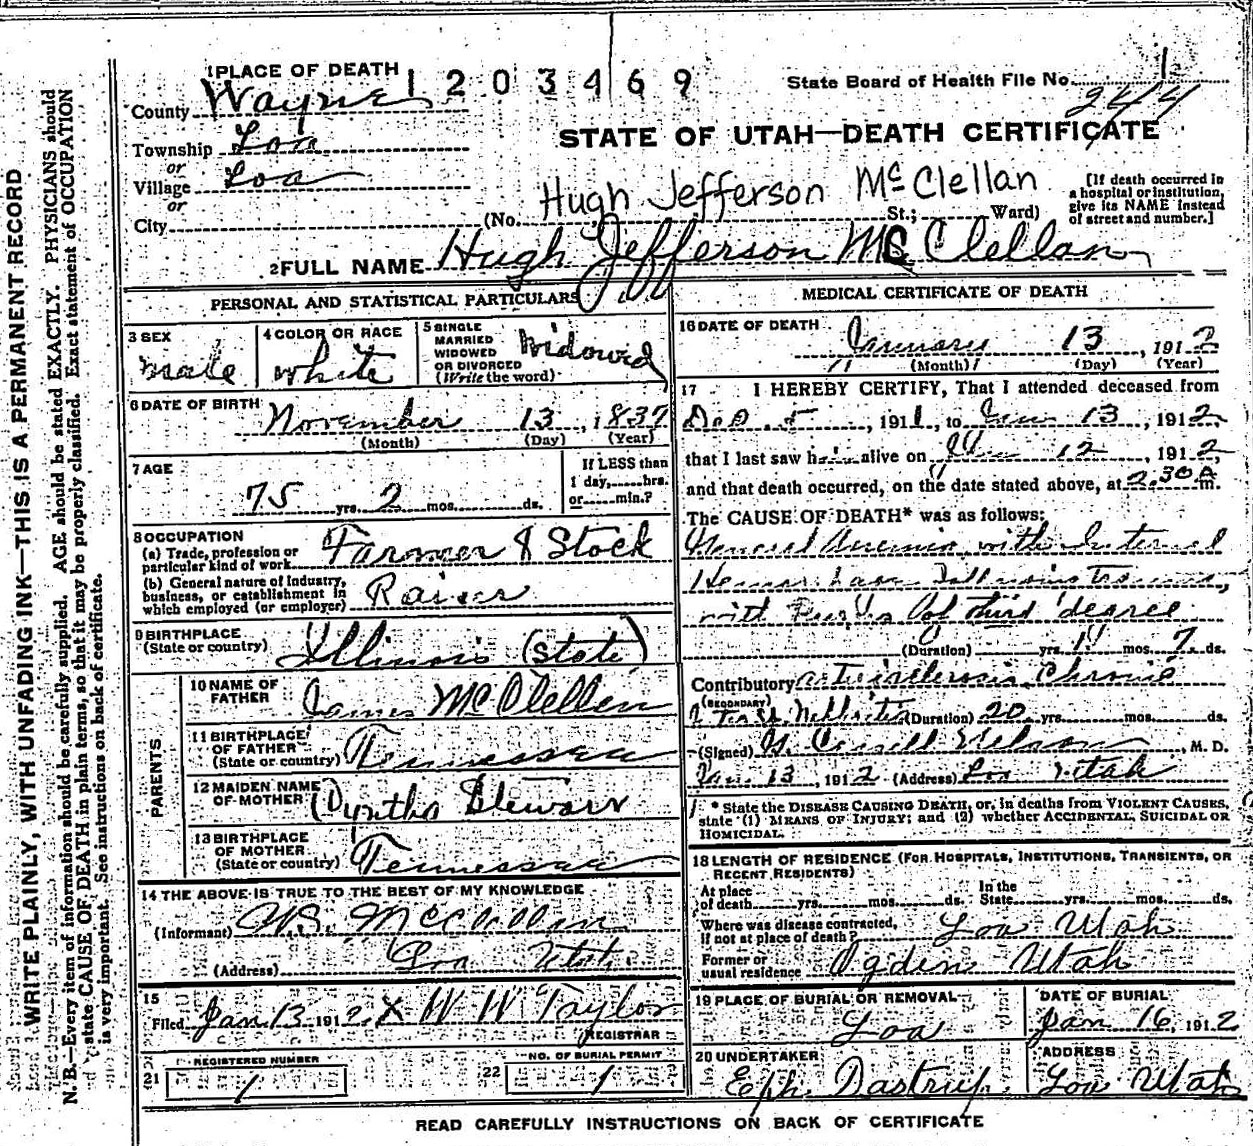 1 PLACE OF DEATH 1203469
State Board of Health File No. 1
244
County Wayne
STATE OF UTAH—DEATH CERTIFICATE
Township Loa
or
Village Loa
or
City
Hugh Jefferson McClellan
(No. St.; Ward)
[If death occurred in
a hospital or institution,
give its NAME instead
of street and number.]
2 FULL NAME Hugh Jefferson McClellan
PERSONAL AND STATISTICAL PARTICULARS
3 SEX
male
4 COLOR OR RACE
white
5 SINGLE
MARRIED
WIDOWED
OR DIVORCED
(Write the word)
Widowed
6 DATE OF BIRTH
November 13, 1837
(Month) (Day) (Year)
7 AGE
75 yrs. 2 mos. ds.
If LESS than
1 day, hrs.
or min.?
8 OCCUPATION
(a) Trade, profession or
particular kind of work
Farmer & Stock
(b) General nature of Industry,
business, or establishment in
which employed (or employer)
Raiser
9 BIRTHPLACE
(State or country)
Illinois (State)
PARENTS
10 NAME OF
FATHER
James McClellen
11 BIRTHPLACE
OF FATHER
(State or country)
Tennessee
12 MAIDEN NAME
OF MOTHER
Stewart
13 BIRTHPLACE
OF MOTHER
(State or country)
Tennessee
14 THE ABOVE IS TRUE TO THE BEST OF MY KNOWLEDGE
(Informant) McClellen
(Address) Loa Utah
15
Filed Jan 13 1912 X W W Taylor
REGISTRAR
21 REGISTERED NUMBER
1
22 NO. OF BURIAL PERMIT
1
MEDICAL CERTIFICATE OF DEATH
16 DATE OF DEATH
January 13, 1912
(Month) (Day) (Year)
17 I HEREBY CERTIFY, That I attended deceased from
5, 1911, to Jan 13, 1912
that I last saw him alive on Jan 12, 1912,
and that death occurred, on the date stated above, at 2.30 A m.
The CAUSE OF DEATH* was as follows:
General Anemia with Internal
with of third degree
(Duration) yrs. mos. 7 ds.
Contributory Chronic
(SECONDARY)
Nephritis (Duration) 20 yrs. mos. ds.
(Signed) Nelson, M. D.
Jan. 13, 1912 (Address) Loa Utah
* State the DISEASE CAUSING DEATH, or, in deaths from VIOLENT CAUSES,
state (1) MEANS OF INJURY; and (2) whether ACCIDENTAL, SUICIDAL OR
HOMICIDAL.
18 LENGTH OF RESIDENCE (FOR HOSPITALS, INSTITUTIONS, TRANSIENTS, OR
RECENT RESIDENTS)
At place
of death yrs. mos. ds.
In the
State yrs. mos. ds.
Where was disease contracted,
if not at place of death?
Loa Utah
Former or
usual residence
Ogden Utah
19 PLACE OF BURIAL OR REMOVAL
Loa
DATE OF BURIAL
Jan 16, 1912
20 UNDERTAKER
Eph. Dastrup.
ADDRESS
Loa Utah
READ CAREFULLY INSTRUCTIONS ON BACK OF CERTIFICATE
WRITE PLAINLY, WITH UNFADING INK—THIS IS A PERMANENT RECORD
N. B.—Every item of information should be carefully supplied. AGE should be stated EXACTLY. PHYSICIANS should
state CAUSE OF DEATH in plain terms, so that it may be properly classified. Exact statement of OCCUPATION
is very important. See instructions on back of certificate.